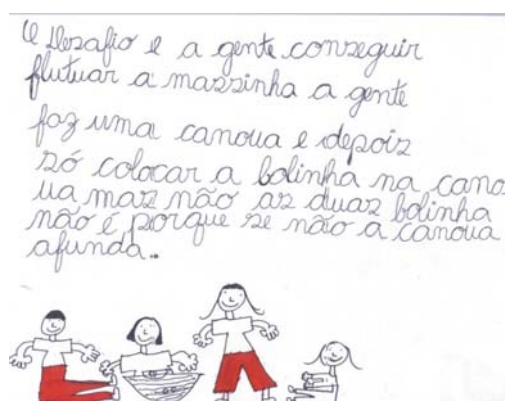 O desafio é a gente conseguir
flutuar a massinha a gente
faz uma canoua e depois
só colocar a bolinha na cano
ua mas não as duas bolinha
não é porque se não a canoua
afunda..